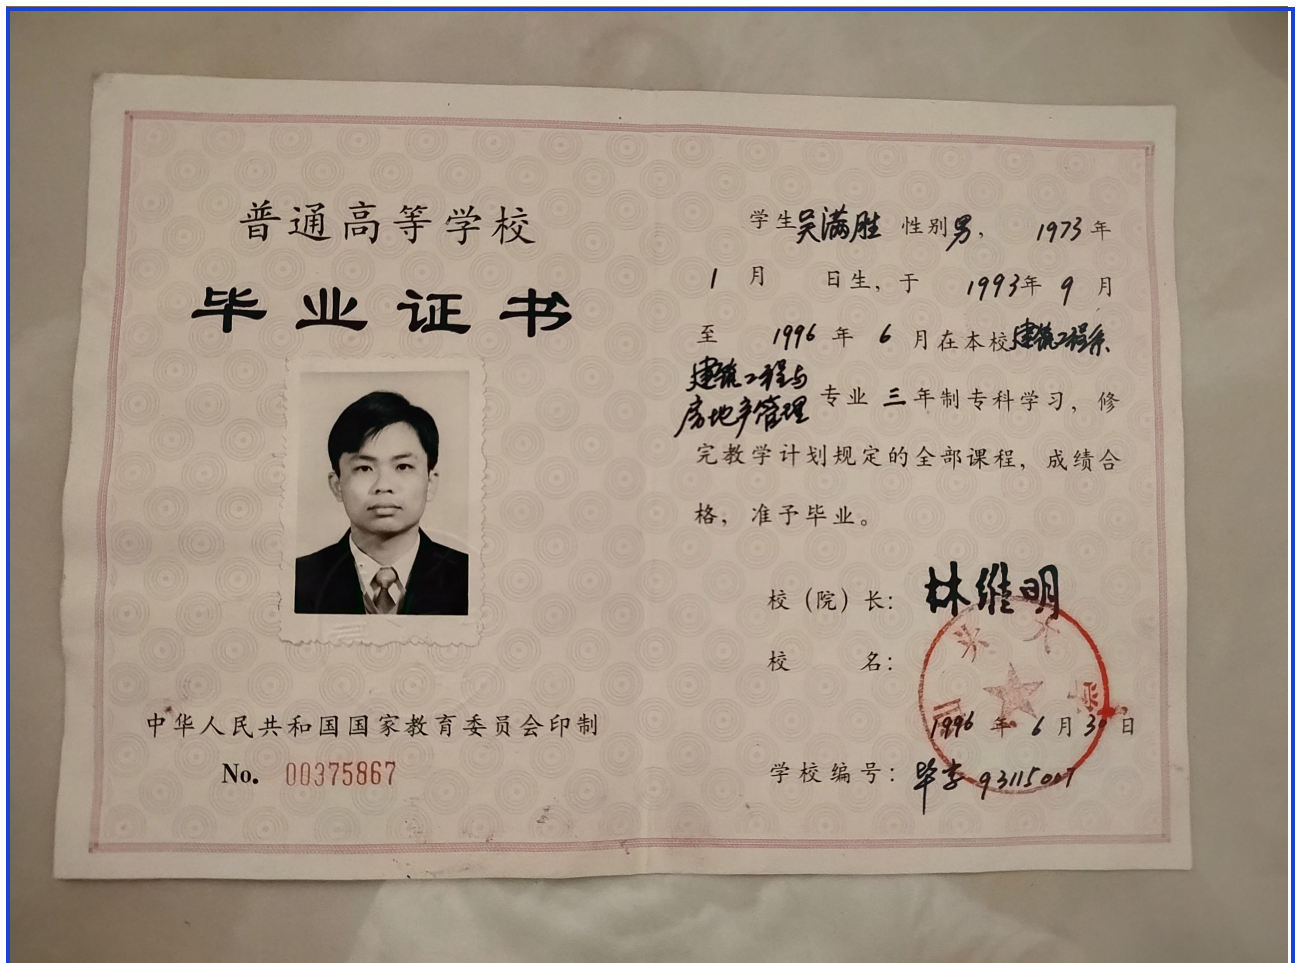 普通高等学校
毕业证书
中华人民共和国国家教育委员会印制
No. 00375867
学生吴满胜 性别男， 1973年
1 月 日生，于 1993年 9 月
至 1996 年 6 月在本校建筑工程系
建筑工程与
房地产管理 专业 三年制专科学习，修
完教学计划规定的全部课程，成绩合
格，准予毕业。
校（院）长：林维明
校 名：
1996 年 6 月 30 日
学校编号：毕字 93115007